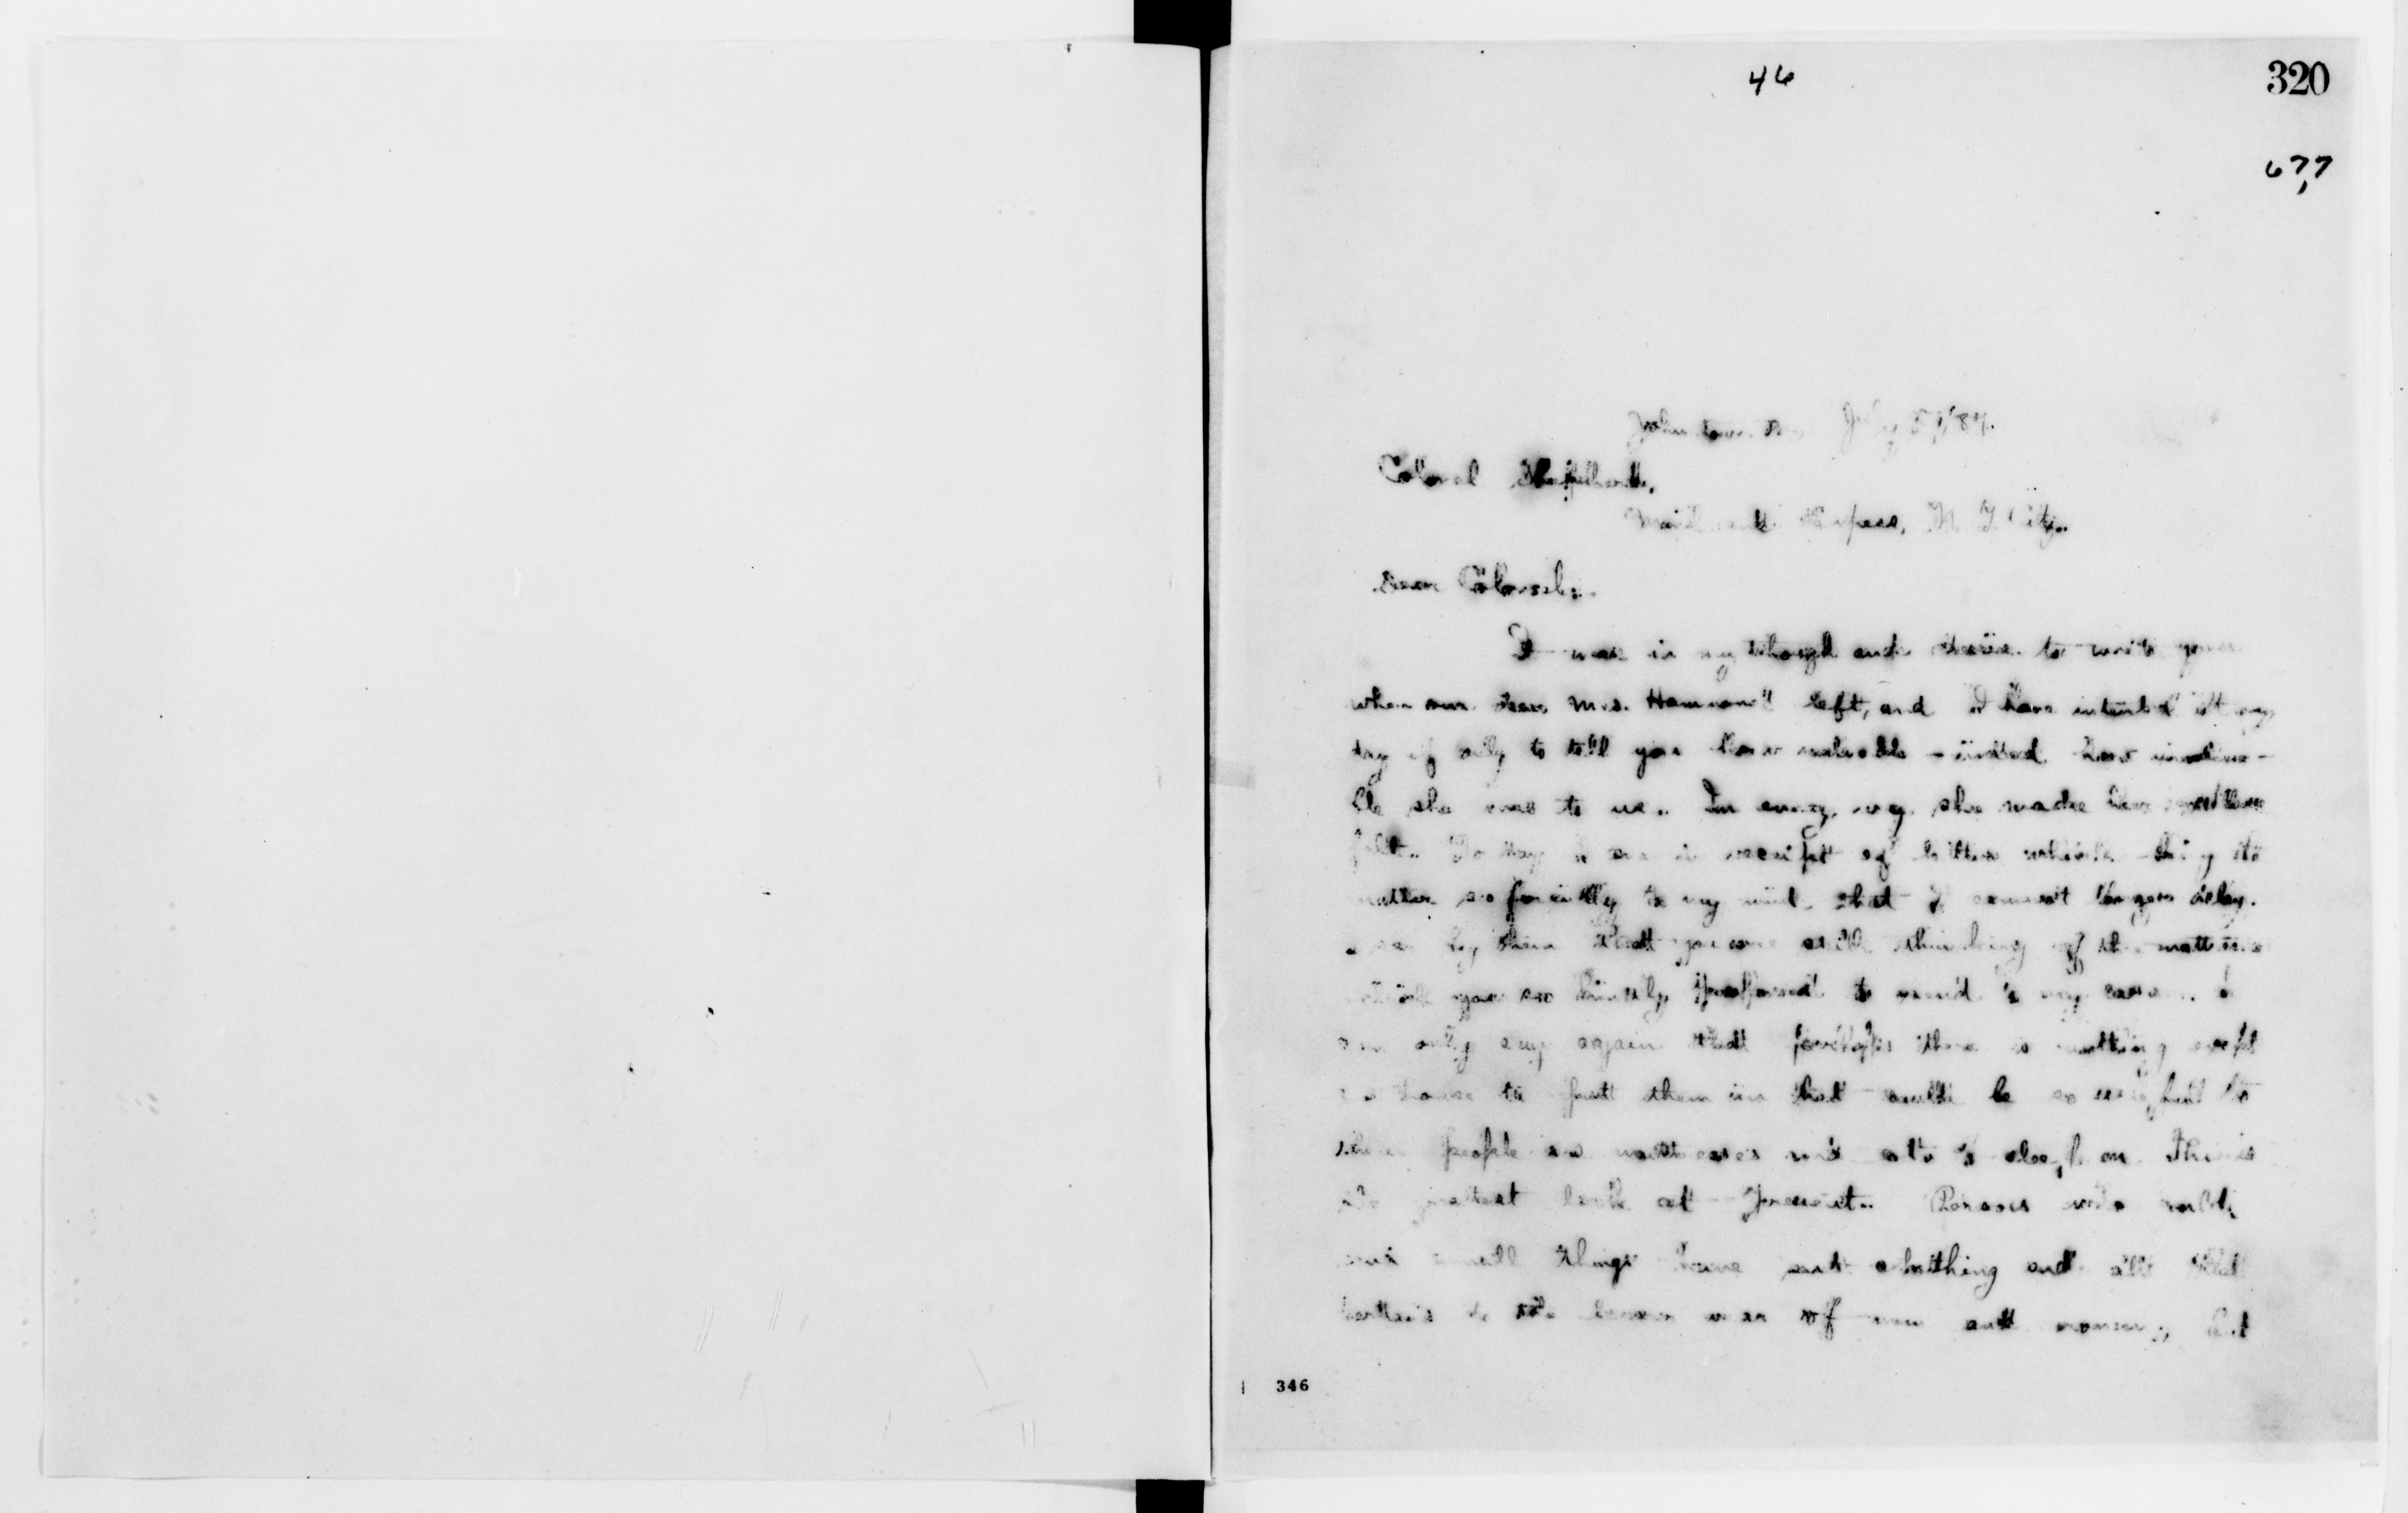 46
320
677
Johnstown Pa. July
Colonel
Mail and Express, N. Y. City.
Dear Colonel:
It was in my thought and desire to write you
when our dear Mrs. left, and I have intended it any
day if only to tell you how valuable - indeed how invalua-
ble she was to us. In every way she made her
felt. To day I am in receipt of letters which bring the
matter so forcibly to my mind that I cannot longer delay.
I see by them that you are still thinking of the mattresses
which you so kindly proposed to send to my care. I
can only say again that perhaps there is nothing except
a house to put them in that would be so
these people as mattresses and cots to sleep on. This is
the greatest lack at present. Persons who could
send small things have sent clothing and all that
pertains to the wear of men and women, but
346